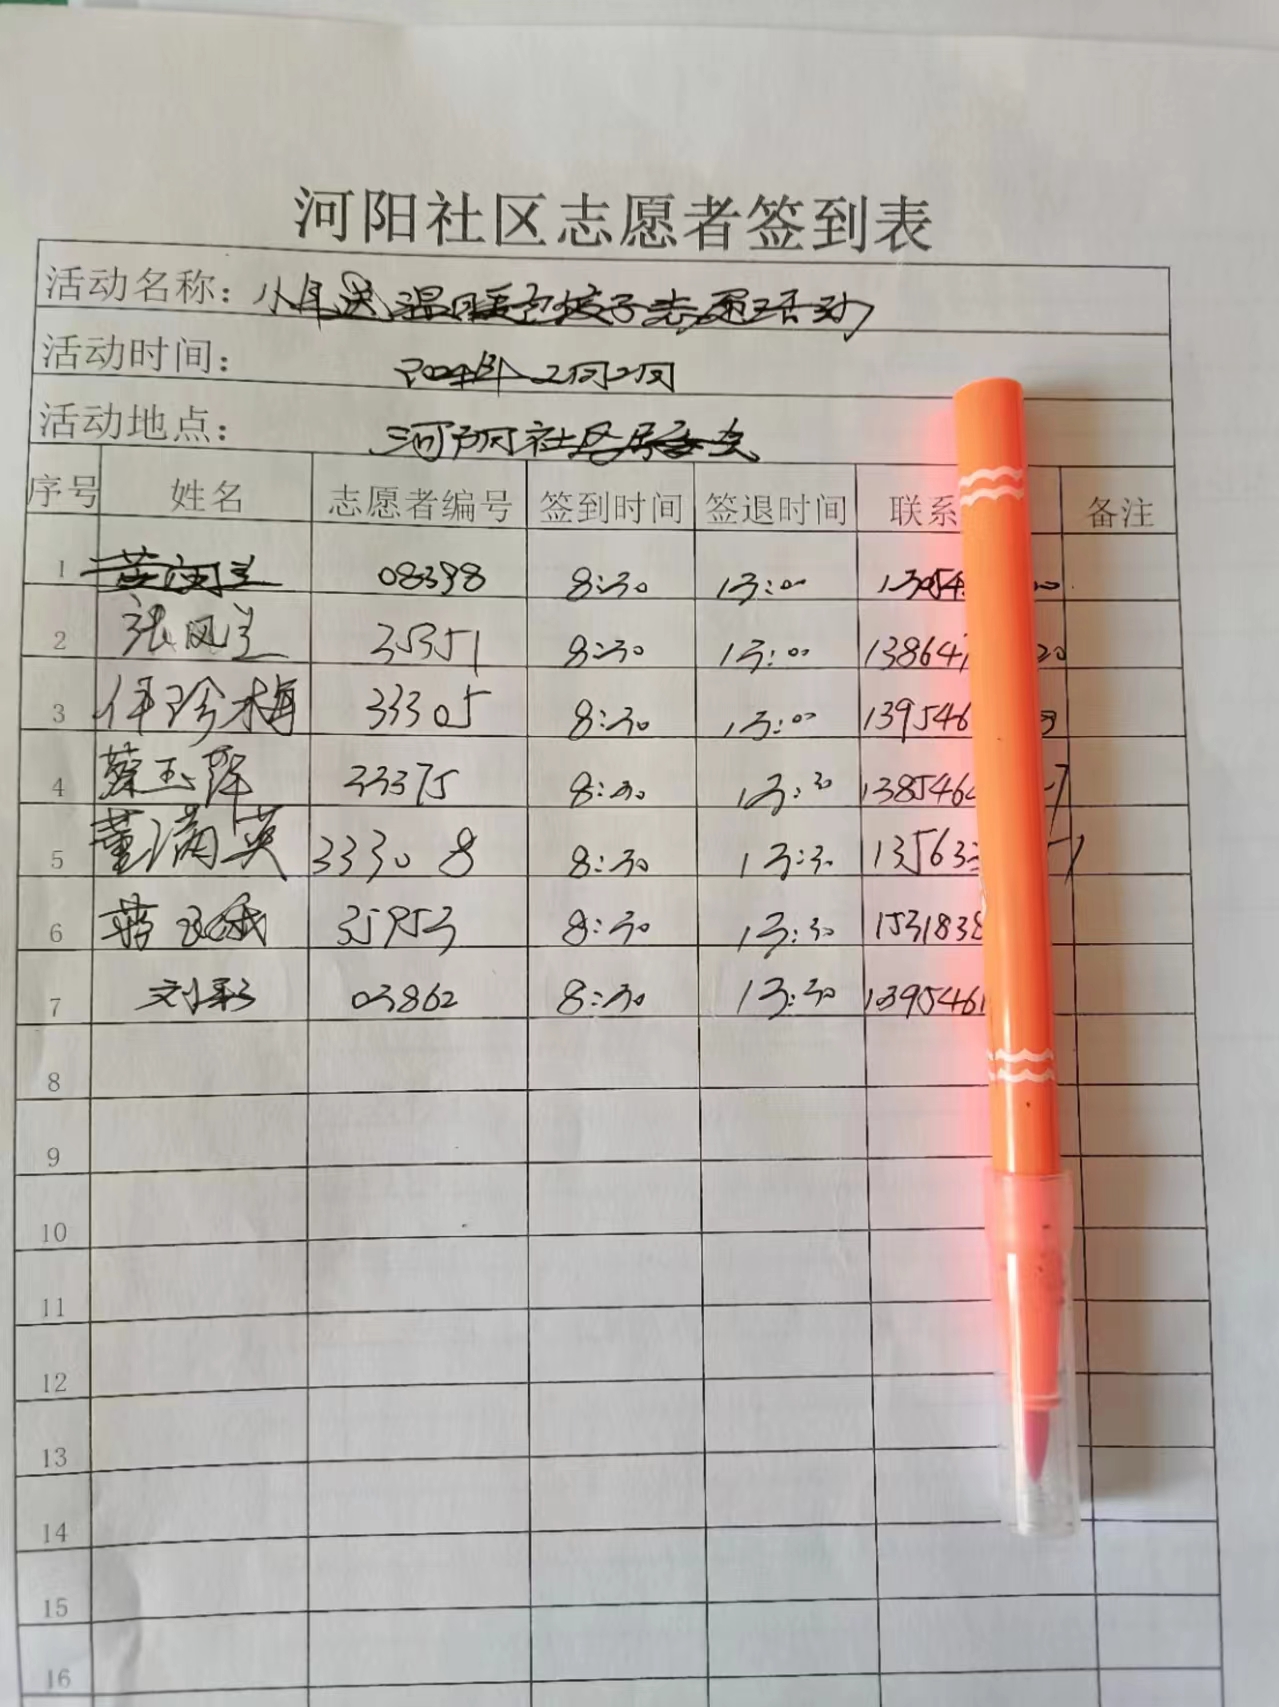 河阳社区志愿者签到表
活动名称：小年送温暖包饺子志愿活动
活动时间：2024年2月2日
活动地点：河阳社区居委
序号 姓名 志愿者编号 签到时间 签退时间 联系 备注
1 兰 08398 8:30 13:00 13054
2 张凤兰 35351 8:30 13:00 13864 20
3 任珍梅 33305 8:30 13:00 139546
4 蔡玉 33375 8:30 13:30 138546 7
5 董满英 33308 8:30 13:30 13563
6 蒋 35953 8:30 13:30 1531838
7 刘彩 03862 8:30 13:30 1395461
8
9
10
11
12
13
14
15
16